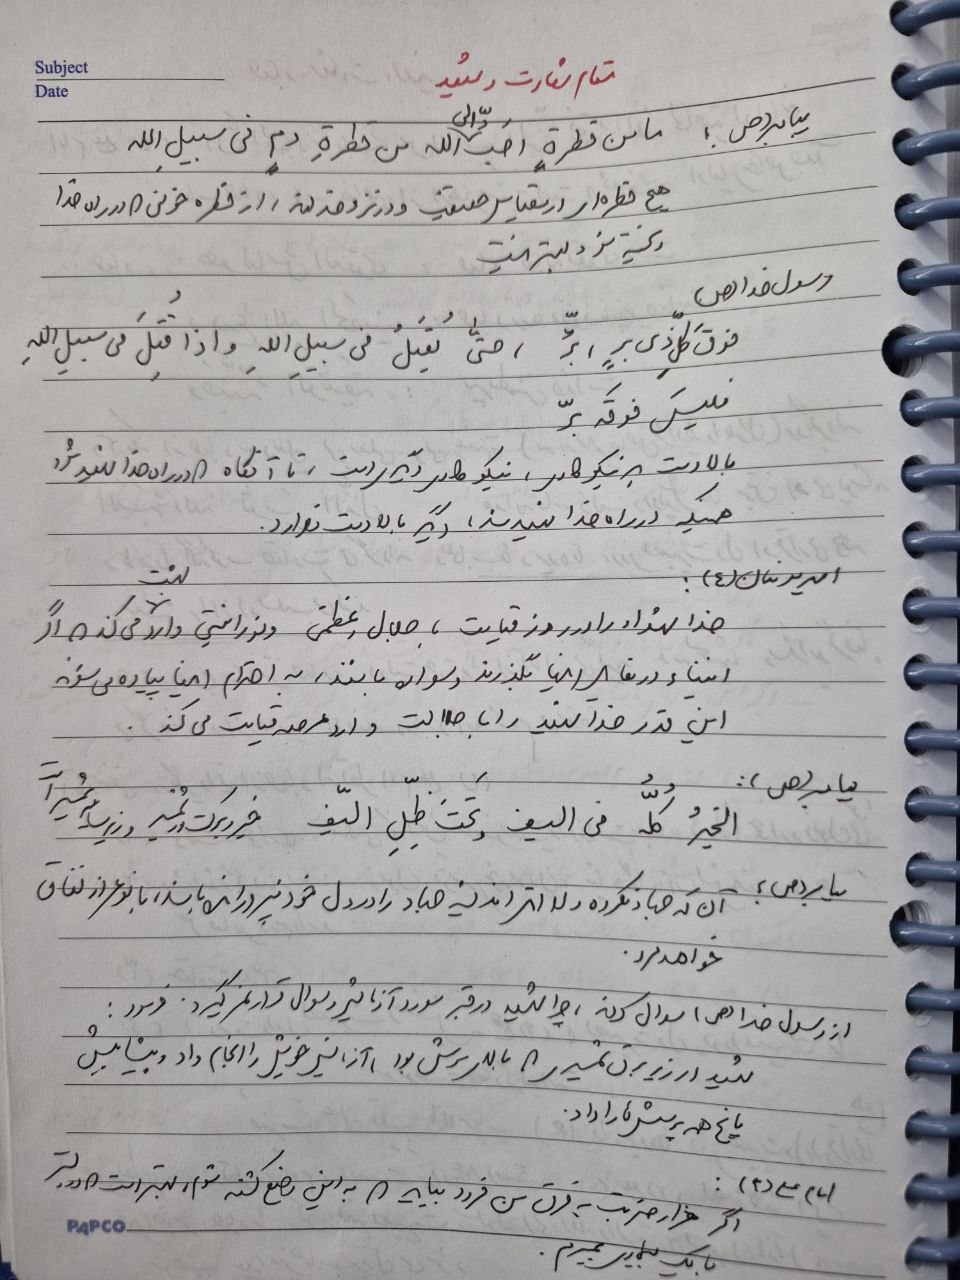 Subject
Date
مقام شهادت و شهید
پیامبر(ص): ما من قطرةٍ اَحَبَّ الی الله من قطرةِ دمٍ فی سبیلِ الله
هیچ قطره‌ای در مقیاس حقیقت و در نزد خدا، از قطره خونی که در راه خدا
ریخته شود بهتر نیست
رسول خدا(ص)
فوقَ کُلِّ ذی برٍ، بِرٌّ، حتّیٰ یُقتَلُ فی سبیلِ اللهِ و اذا قُتِلَ فی سبیلِ اللهِ
فلیسَ فوقَه بِرّ
بالادست هر نیکوکاری، نیکوکاری دیگری است، تا آنگاه که در راه خدا شهید شود
همینکه در راه خدا شهید شد، دیگر بالادست ندارد.
امیرمؤمنان(ع):
خدا شهداء را در روز قیامت با جلال و عظمتی و نورانیتی وارد می‌کند که اگر
انبیاء در مقابل اینها بگذرند و سواره باشند، به احترام اینها پیاده می‌شوند
این قدر خدا شهید را با جلالت وارد عرصه قیامت می‌کند.
پیامبر(ص):
الخیرُ کُلُّه فی السیف وَ تَحتَ ظِلِّ السّیف خیر و برکت در شمشیر و زیر سایه شمشیر است
پیامبر(ص):
آن که جهاد نکرده و لااقل اندیشه جهاد را در دل خود نپرورانده باشد، با نوعی از نفاق
خواهد مرد.
از رسول خدا(ص) سوال کردند، چرا شهید در قبر مورد آزمایش و سوال قرار نمی‌گیرد. فرمود:
شهید در زیر برق شمشیری که بالای سرش بود، آزمایش خویش را انجام داد و پیشاپیش
پاسخ همه پرسش‌ها را داد.
امام علی(ع):
اگر هزار ضربت به فرق من فرود بیاید که به این وضع کشته شوم، بهتر است که در بستر
با یک بیماری بمیرم.
PAPCO